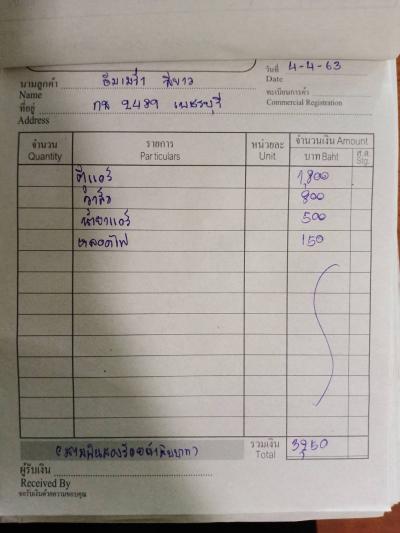 วันที่ 4-4-63
Date
นามลูกค้า อิมเมร่า สีขาว
Name
ทะเบียนการค้า
Commercial Registration
ที่อยู่ กษ 2489 เพชรบุรี
Address
จำนวน รายการ หน่วยละ จำนวนเงิน Amount
Quantity Particulars Unit บาท Baht ส.ต. Stg.
ตู้แอร์ 1,800
800
น้ำยาแอร์ 500
หลอดไฟ 150
รวมเงิน 3,250
Total
(สามพันสองร้อยห้าสิบบาท)
ผู้รับเงิน
Received By
ขอรับเงินด้วยความขอบคุณ